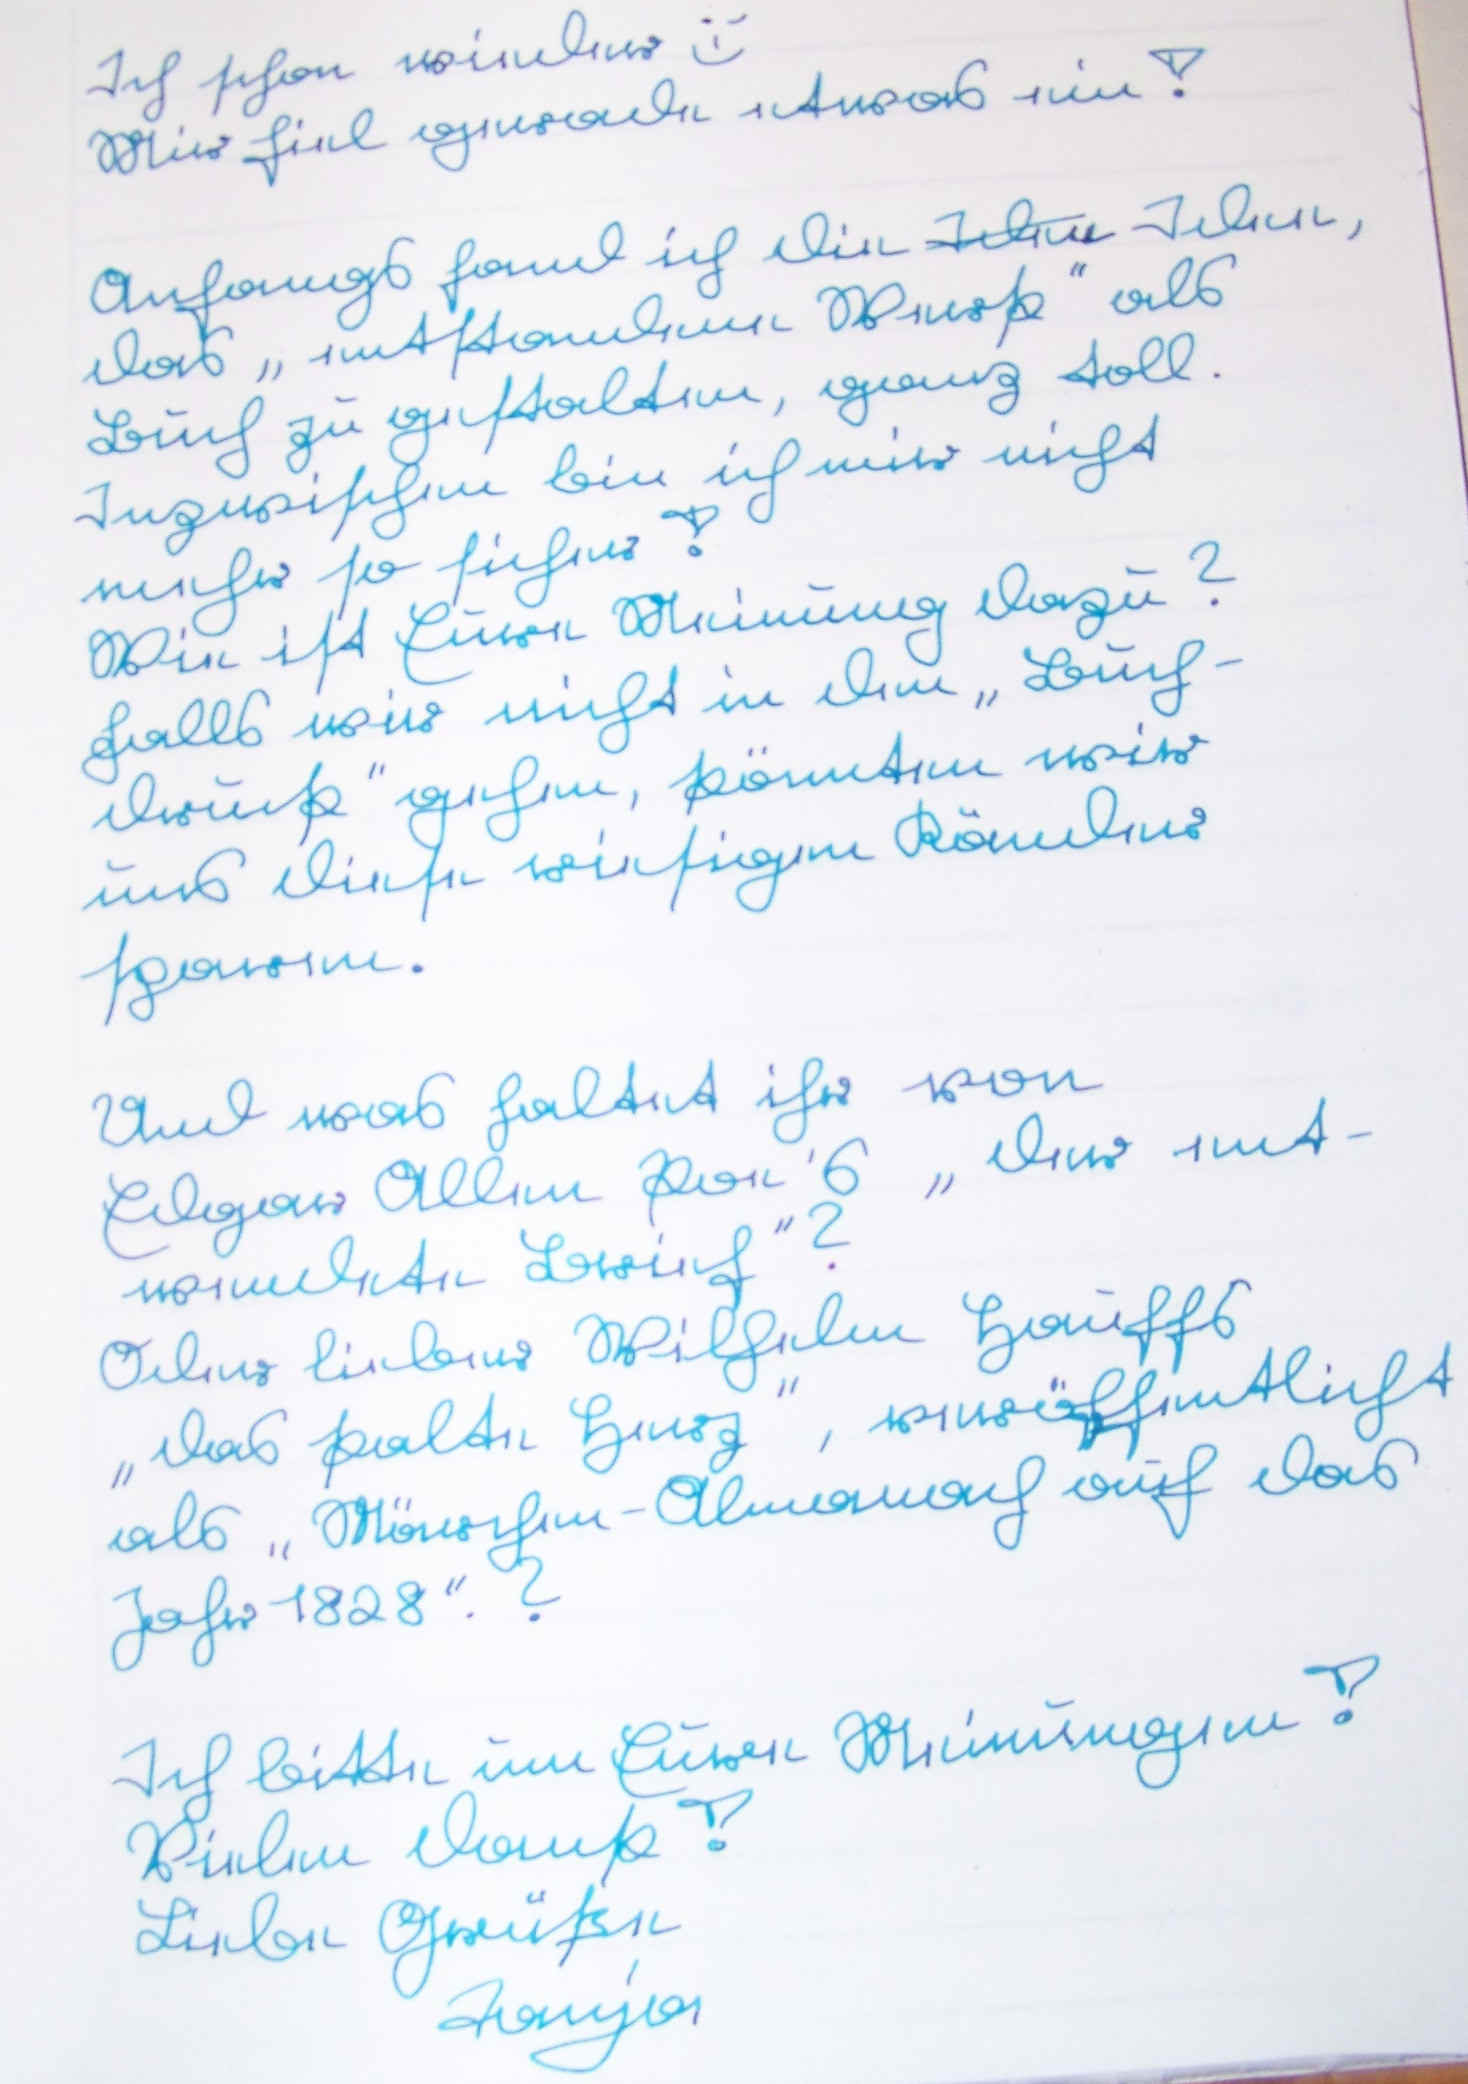 Ich schon wieder :)
Mir fiel gerade etwas ein!
Anfangs fand ich die Idee Ideen,
das „entstandene Werk" als
Buch zu gestalten, ganz toll.
Inzwischen bin ich mir nicht
mehr so sicher!
Wie ist Eure Meinung dazu?
Falls wir nicht in den „Buch-
druck" gehen, könnten wir
uns diese riesigen Ränder
sparen.
Und was haltet ihr von
Edgar Allen Poe's „der ent-
wendete Brief"?
Oder lieber Wilhelm Hauffs
„das kalte Herz", veröffentlicht
als „Märchen-Almanach auf das
Jahr 1828".?
Ich bitte um Eure Meinungen!
Vielen Dank!
Liebe Grüße
Tanja